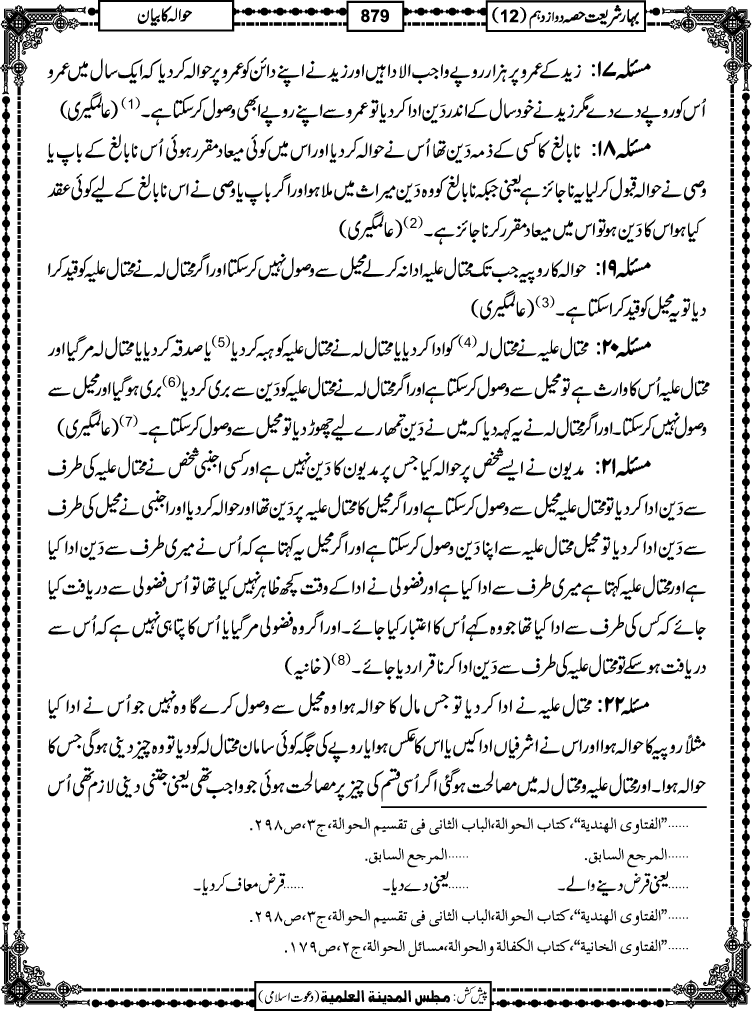 بہارشریعت حصہ دوازدہم (12)
879
حوالہ کا بیان
مسئلہ ۱۷: زید کے عمرو پر ہزار روپے واجب الادا ہیں اور زید نے اپنے دائن کو عمرو پر حوالہ کر دیا کہ ایک سال میں عمرو
اُس کو روپے دے دے مگر زید نے خود سال کے اندر دَین ادا کر دیا تو عمرو سے اپنے روپے ابھی وصول کرسکتا ہے۔(1) (عالمگیری)
مسئلہ ۱۸: نابالغ کا کسی کے ذمہ دَین تھا اُس نے حوالہ کر دیا اور اس میں کوئی میعاد مقرر ہوئی اُس نابالغ کے باپ یا
وصی نے حوالہ قبول کر لیا یہ ناجائز ہے یعنی جبکہ نابالغ کو وہ دَین میراث میں ملا ہو اور اگر باپ یا وصی نے اس نابالغ کے لیے کوئی عقد
کیا ہو اس کا دَین ہو تو اس میں میعاد مقرر کرنا جائز ہے۔(2) (عالمگیری)
مسئلہ ۱۹: حوالہ کا روپیہ جب تک محتال علیہ ادا نہ کرلے محیل سے وصول نہیں کرسکتا اور اگر محتال لہ نے محتال علیہ کو قید کرا
دیا تو یہ محیل کو قید کرا سکتا ہے۔(3) (عالمگیری)
مسئلہ ۲۰: محتال علیہ نے محتال لہ(4) کو ادا کر دیا یا محتال لہ نے محتال علیہ کو ہبہ کر دیا(5) یا صدقہ کر دیا یا محتال لہ مر گیا اور
محتال علیہ اُس کا وارث ہے تو محیل سے وصول کرسکتا ہے اور اگر محتال لہ نے محتال علیہ کو دَین سے بری کر دیا(6) بری ہوگیا اور محیل سے
وصول نہیں کرسکتا۔ اور اگر محتال لہ نے یہ کہہ دیا کہ میں نے دَین تمھارے لیے چھوڑ دیا تو محیل سے وصول کرسکتا ہے۔(7) (عالمگیری)
مسئلہ ۲۱: مدیون نے ایسے شخص پر حوالہ کیا جس پر مدیون کا دَین نہیں ہے اور کسی اجنبی شخص نے محتال علیہ کی طرف
سے دَین ادا کر دیا تو محتال علیہ محیل سے وصول کرسکتا ہے اور اگر محیل کا محتال علیہ پر دَین تھا اور حوالہ کر دیا اور اجنبی نے محیل کی طرف
سے دَین ادا کر دیا تو محیل محتال علیہ سے اپنا دَین وصول کرسکتا ہے اور اگر محیل یہ کہتا ہے کہ اُس نے میری طرف سے دَین ادا کیا
ہے اور محتال علیہ کہتا ہے میری طرف سے ادا کیا ہے اور فضولی نے ادا کے وقت کچھ ظاہر نہیں کیا تھا تو اُس فضولی سے دریافت کیا
جائے کہ کس کی طرف سے ادا کیا تھا جو وہ کہے اُس کا اعتبار کیا جائے۔ اور اگر وہ فضولی مر گیا یا اُس کا پتا ہی نہیں ہے کہ اُس سے
دریافت ہوسکے تو محتال علیہ کی طرف سے دَین ادا کرنا قرار دیا جائے۔(8) (خانیہ)
مسئلہ ۲۲: محتال علیہ نے ادا کر دیا تو جس مال کا حوالہ ہوا وہ محیل سے وصول کرے گا وہ نہیں جو اُس نے ادا کیا
مثلاً روپیہ کا حوالہ ہوا اور اس نے اشرفیاں ادا کیں یا اس کا عکس ہوا یا روپے کی جگہ کوئی سامان محتال لہ کو دیا تو وہ چیز دینی ہوگی جس کا
حوالہ ہوا۔ اور محتال علیہ و محتال لہ میں مصالحت ہوگئی اگر اُسی قسم کی چیز پر مصالحت ہوئی جو واجب تھی یعنی جتنی دینی لازم تھی اُس
......"الفتاوی الهندية"، کتاب الحوالة، الباب الثانی فی تقسیم الحوالة، ج۳، ص۲۹۸.
......المرجع السابق. ......المرجع السابق.
......یعنی قرض دینے والے۔ ......یعنی دے دیا۔ ......قرض معاف کر دیا۔
......"الفتاوی الهندية"، کتاب الحوالة، الباب الثانی فی تقسیم الحوالة، ج۳، ص۲۹۸.
......"الفتاوی الخانية"، کتاب الکفالة والحوالة، مسائل الحوالة، ج۲، ص۱۷۹.
پیش کش: مجلس المدینة العلمیة (دعوت اسلامی)